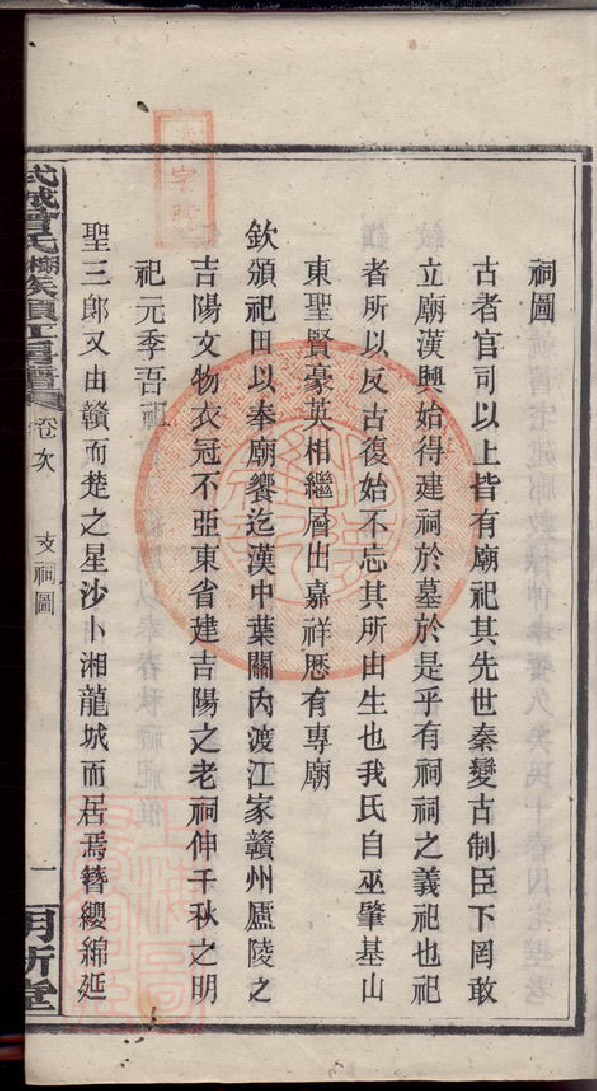 祠圖
古者官司以上皆有廟祀其先世秦變古制臣下罔敢
立廟漢興始得建祠於墓於是乎有祠祠之義祀也祀
者所以反古復始不忘其所由生也我氏自巫肇基山
東聖賢豪英相繼層出嘉祥歷有專廟
欽頒祀田以奉廟饗迄漢中葉關內渡江家贛州廬陵之
吉陽文物衣冠不亞東省建吉陽之老祠伸千秋之明
祀元季吾
聖三郎又由贛而楚之星沙卜湘龍城而居焉簪纓綿延
武城曾氏 卷次 支祠圖 一